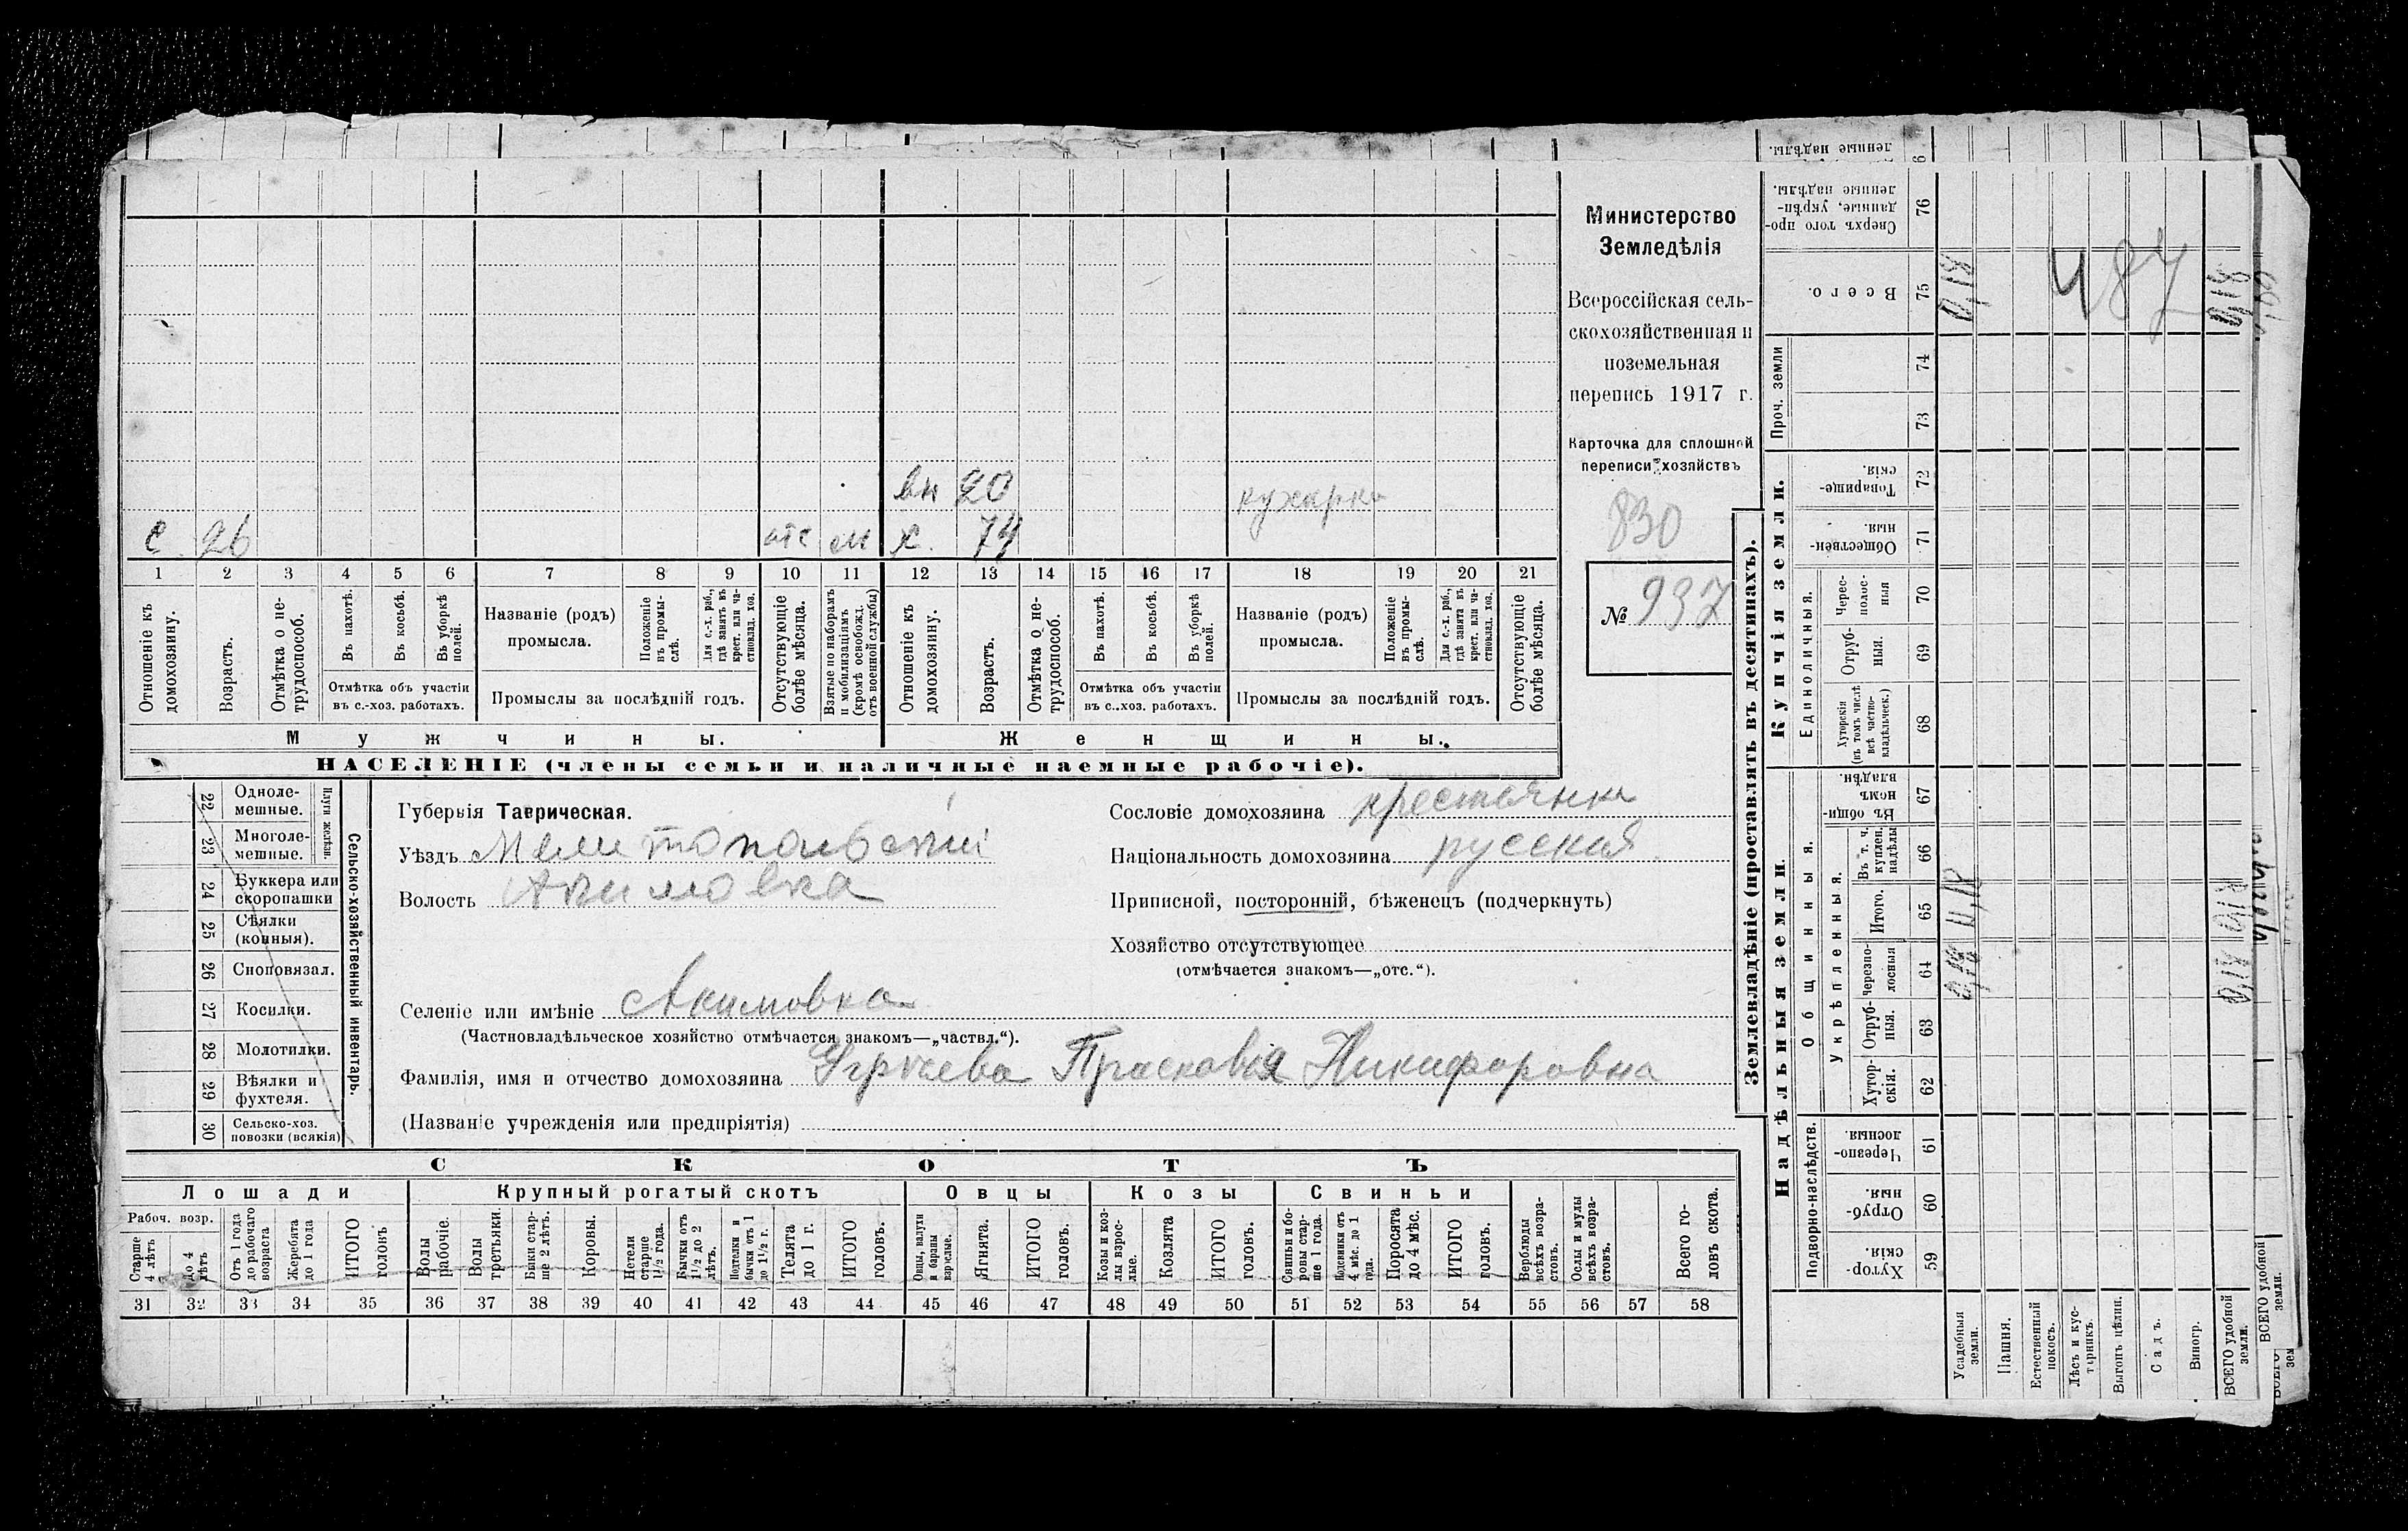 вн 20 кухарка
с 26 отс м х. 74
1 2 3 4 5 6 7 8 9 10 11 12 13 14 15 16 17 18 19 20 21
Отношеніе къ домохозяину.
Возрастъ.
Отмѣтка о не-трудоспособ.
Въ пахотѣ.
Въ косьбѣ.
Въ уборкѣ полей.
Отмѣтка объ участіи въ с.-хоз. работахъ.
Названіе (родъ) промысла.
Положеніе въ промы-слѣ.
Для с.-х. раб., гдѣ занятъ въ крест. или ча-стновлад. хоз.
Промыслы за послѣдній годъ.
Отсутствующіе болѣе мѣсяца.
Взятые по наборамъ и мобилизаціямъ (кромѣ освобожд. отъ военной службы)
Отношеніе къ домохозяину.
Возрастъ.
Отмѣтка о не-трудоспособ.
Въ пахотѣ.
Въ косьбѣ.
Въ уборкѣ полей.
Отмѣтка объ участіи въ с.-хоз. работахъ.
Названіе (родъ) промысла.
Положеніе въ промы-слѣ.
Для с.-х. раб., гдѣ занята въ крест. или ча-стновлад. хоз.
Промыслы за послѣдній годъ.
Отсутствующіе болѣе мѣсяца.
Мужчины. Женщины.
НАСЕЛЕНІЕ (члены семьи и наличные наемные рабочіе).
Министерство
Земледѣлія
Всероссійская сель-
скохозяйственная и
поземельная
перепись 1917 г.
Карточка для сплошной
переписи хозяйствъ
830
№ 937
22 Одноле-мешные.
23 Многоле-мешные.
Плуги желѣзн.
24 Буккера или скоропашки
25 Сѣялки (конныя).
26 Сноповязал.
27 Косилки.
28 Молотилки.
29 Вѣялки и фухтеля.
30 Сельско-хоз. повозки (всякія)
Сельско-хозяйственный инвентарь.
Губернія Таврическая.
Уѣздъ Мелитопольскій
Волость Акимовка
Селеніе или имѣніе Акимовка
(Частновладѣльческое хозяйство отмѣчается знакомъ—„частвл.“).
Фамилія, имя и отчество домохозяина Прасковія Никифоровна
(Названіе учрежденія или предпріятія)
Сословіе домохозяина крестьянка
Національность домохозяина русская
Приписной, посторонній, бѣженецъ (подчеркнуть)
Хозяйство отсутствующее
(отмѣчается знакомъ—„отс.“).
СКОТЪ
Лошади
Рабоч. возр.
Старше 4 лѣтъ
до 4 лѣтъ
Отъ 1 года до рабочаго возраста
Жеребята до 1 года
ИТОГО головъ
Крупный рогатый скотъ
Волы рабочіе.
Волы третьяки.
Быки стар-ше 2 лѣтъ.
Коровы.
Нетели старше 1½ года.
Бычки отъ 1½ до 2 лѣтъ.
Подтелки и бычки отъ 1 до 1½ г.
Телята до 1 г.
ИТОГО головъ.
Овцы
Овцы, валухи и бараны взрослые.
Ягнята.
ИТОГО головъ.
Козы
Козы и коз-лы взрос-лые.
Козлята
ИТОГО головъ.
Свиньи
Свиньи и бо-ровы стар-ше 1 года.
Подсвинки отъ 4 мѣс. до 1 года.
Поросята до 4 мѣс.
ИТОГО головъ.
Верблюды всѣхъ возра-стовъ.
Ослы и мулы всѣхъ возра-стовъ.
Всего го-ловъ скота.
31 32 33 34 35 36 37 38 39 40 41 42 43 44 45 46 47 48 49 50 51 52 53 54 55 56 57 58
Землевладѣніе (проставлять въ десятинахъ).
ленные надѣлы.
76 Сверхъ того про-данные, укрѣп-ленные надѣлы.
75 Всего. 0,18 0,18
487
Проч. земли
74
73
Купчія земли.
72 Товарище-скія.
71 Обществен-ныя.
Единоличныя.
70 Черес-полос-ныя
69 Отруб-ныя.
68 Хуторскія (въ томъ числѣ всѣ частно-владѣльческ.)
Надѣльныя земли.
Общинныя.
67 Въ общи-номъ владѣн.
Укрѣпленныя.
66 Въ т. ч. куплен. надѣлы
65 Итого. 0,18 0,18
64 Черезпо-лосныя 0,18 0,18
63 Отруб-ныя.
62 Хутор-скія.
Подворно-наслѣдств.
61 Черезпо-лосныя
60 Отруб-ныя.
59 Хутор-скія.
Усадебныя земли.
Пашня.
Естественный покосъ.
Лѣсъ и кус-тарникъ.
Выгонъ цѣлин.
Садъ.
Виногр.
ВСЕГО удобной земли.
ВСЕГО удобной земли.